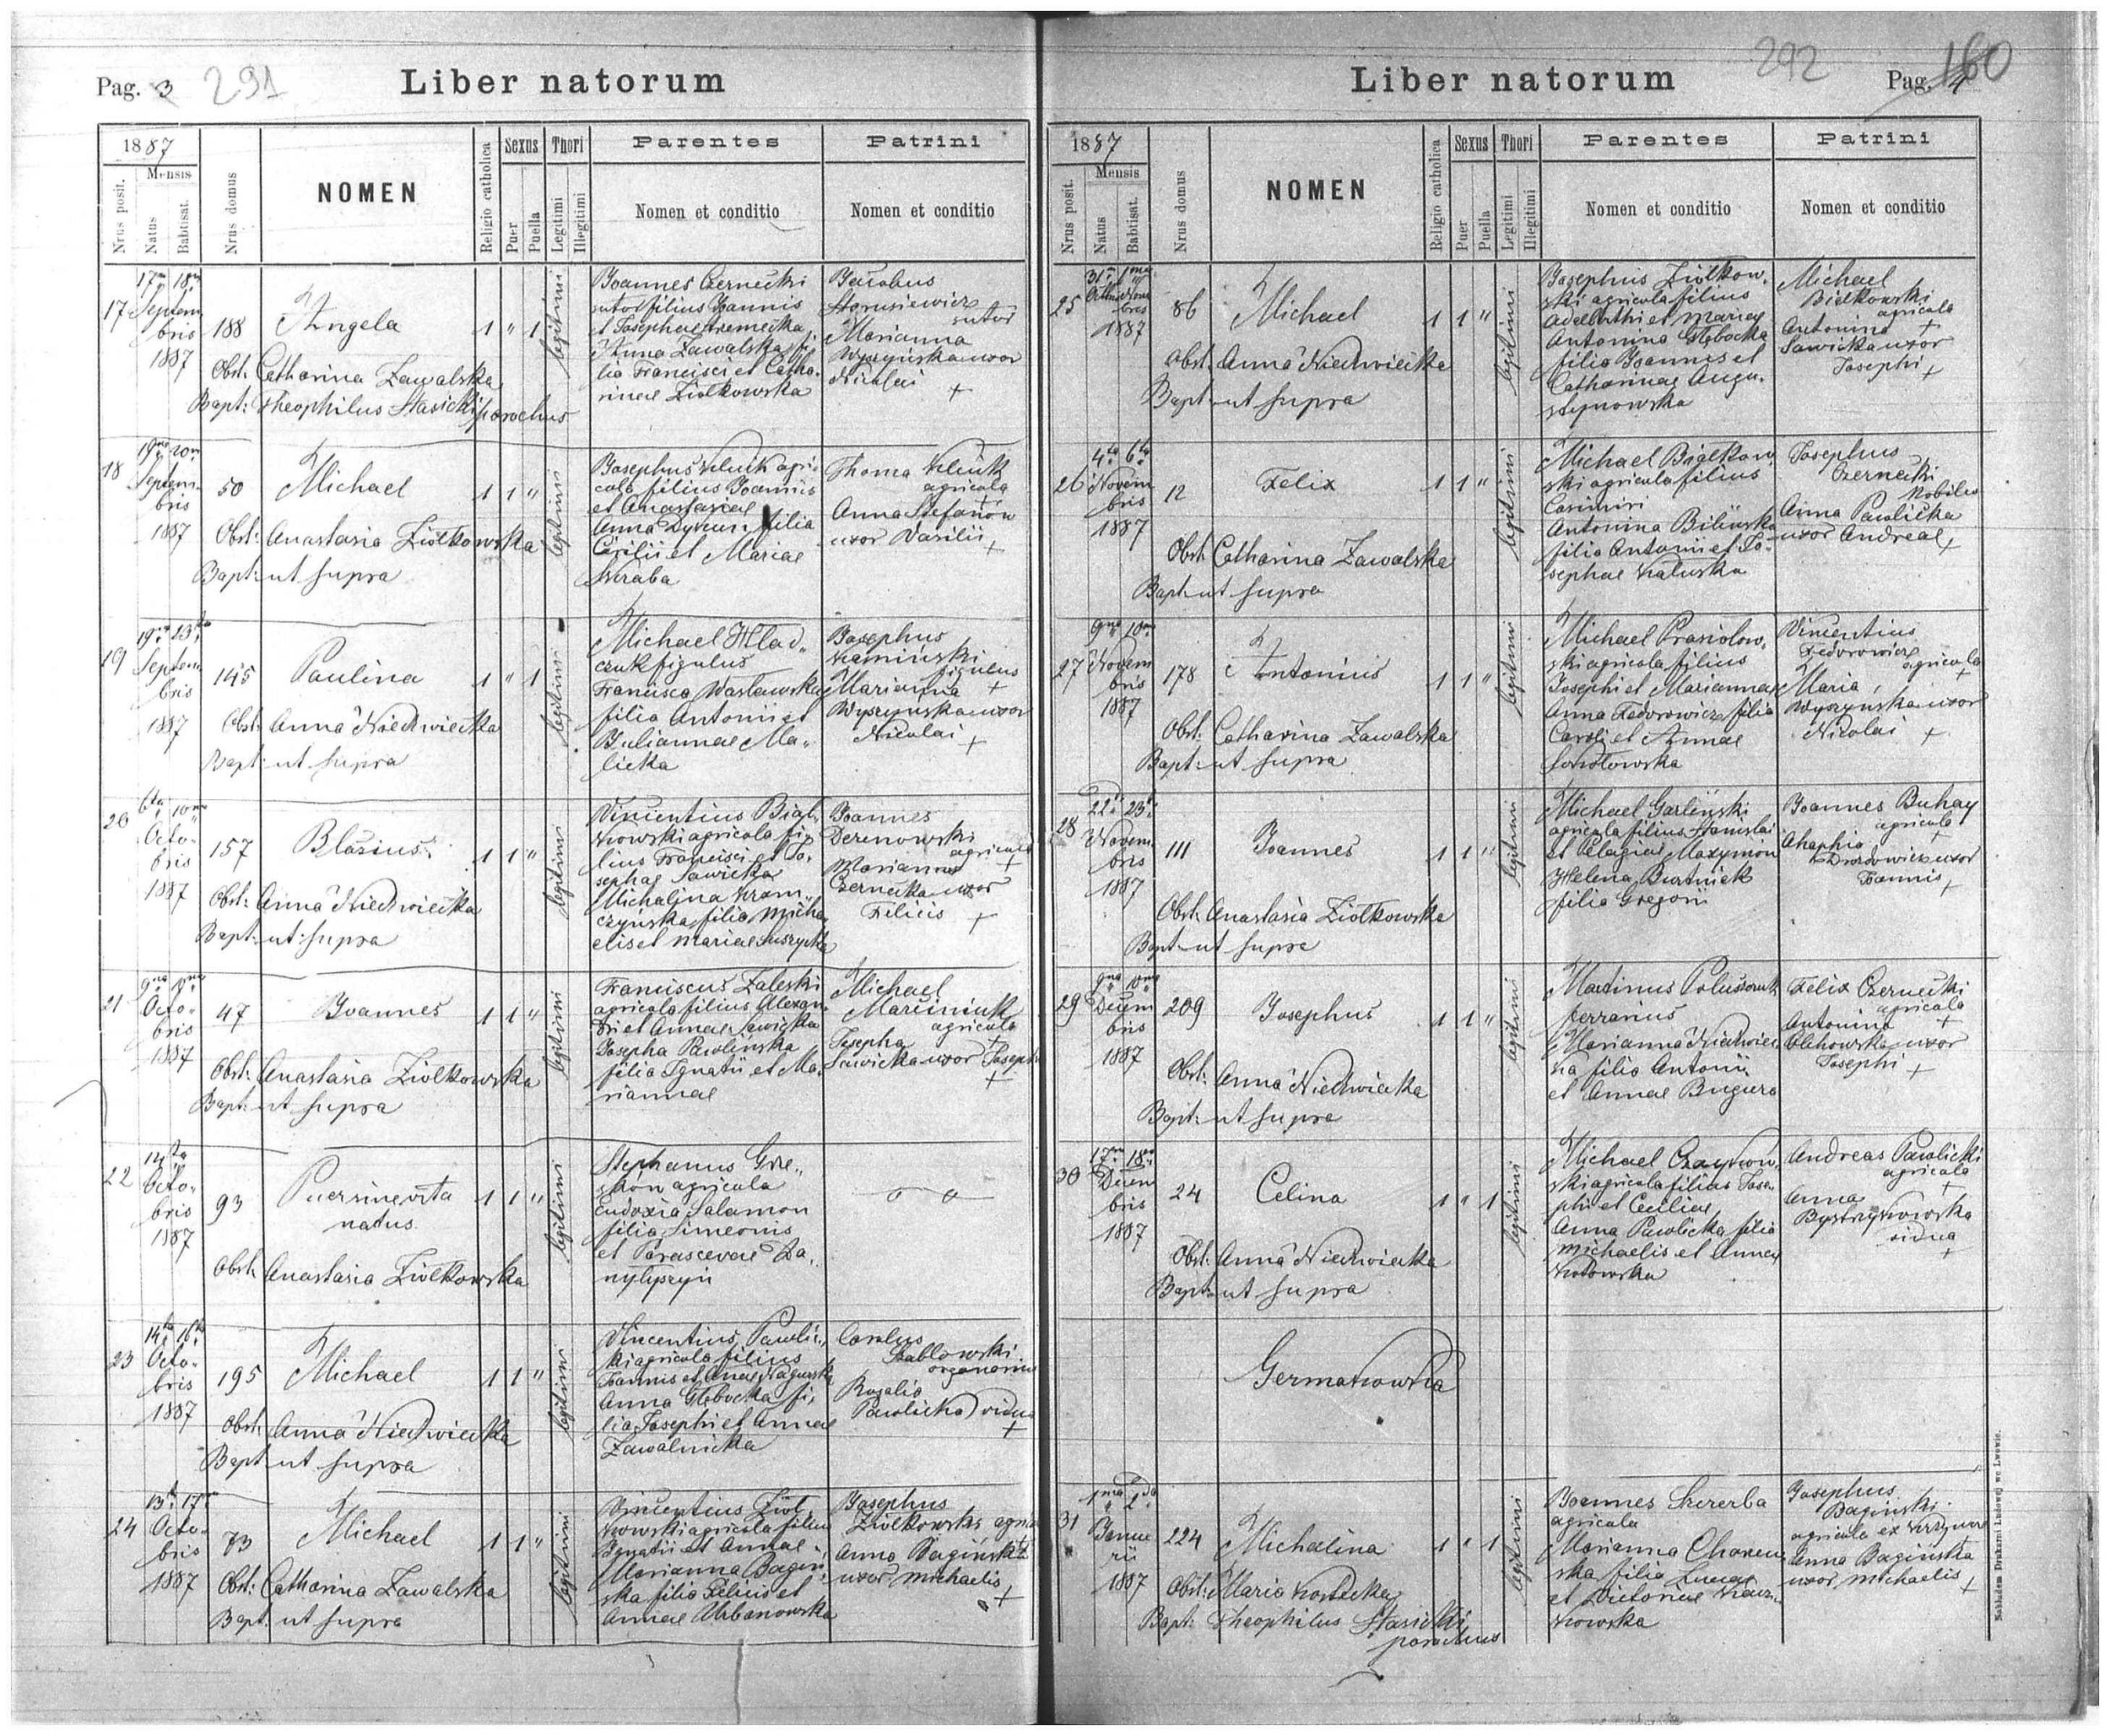 Pag. 3 291 Liber natorum
1887
Mensis
Nrus posit.
Natus
Babtisat.
Nrus domus
NOMEN
Religio catholica
Sexus
Puer
Puella
Thori
Legitimi
Illegitimi
Parentes
Nomen et conditio
Patrini
Nomen et conditio
17 17a 18a Septem
bris
1887
188 Angela 1 " 1 legitimi
Obst: Catharina Zawalska
Bapt: Theophilus Stasicki parochus
Joannes Czernecki
sutor filius Joannis
et Josephae
Anna Zawalska fi
lia Francisci et Catha
rinae Ziolkowska
Jacobus
sutor
Marianna
Wyszynska uxor
Nicolai +
18 19na 20a
Septem
bris
1887
50 Michael 1 1 " legitimi
Obst: Anastasia Ziolkowska
Bapt: ut supra
Josephus agri
cola filius Joannis
et Anastasiae
Anna filia
et Mariae
Thoma
agricola
+
Anna Stefanow
uxor Wasilii +
19 19na 23tia
Septem
bris
1887
145 Paulina 1 " 1 legitimi
Obst: Anna Niedzwiecka
Bapt: ut supra
Michael Hlad„
czuk figulus
Francisca Wasławska
filia Antonii et
Juliannae Ma„
licka
Josephus
Kamiński
figulus
Marianna +
Wyszynska uxor
Nicolai +
20 6ta 10ma
Octo„
bris
1887
157 Blasius 1 1 " legitimi
Obst: Anna Niedzwiecka
Bapt: ut supra
Vincentius Biał
kowski agricola fi„
lius Francisci et Jo„
sephae Sawicka
Michalina Kram
czyńska filia Micha
elis et Mariae
Joannes
Derenowski
agricola
Marianna +
Czernecka uxor
Felicis +
21
Octo„
bris
1887
47 Joannes 1 1 " legitimi
Obst: Anastasia Ziolkowska
Bapt: ut supra
Franciscus Zaleski
agricola filius Alexan
dri et Annae Sawicka
Josepha Pawlińska
filia Ignatii et Ma„
riannae
Michael
Marciniuk
agricola
+
Josepha
Sawicka uxor Josephi
+
22 14ta
Octo„
bris
1887
93 Puer sine vita 1 1 " legitimi
natus
Obst: Anastasia Ziolkowska
Stephanus Grze„
agricola
Eudoxia Salamon
filia Simeonis
et Parascevae Da„
nylyszyn
23 14ta 16ta
Octo„
bris
1887
195 Michael 1 1 " legitimi
Obst: Anna Niedzwiecka
Bapt: ut supra
Vincentius Pawlic„
ki agricola filius
Joannis et Annae
Anna Głębocka fi„
lia Josephi et Annae
Zawalnicka
Carolus
Szablowski
organarius
Rosalia
Pawlicka vidua
+
24 13a 17a
Octo„
bris
1887
73 Michael 1 1 " legitimi
Obst: Catharina Zawalska
Bapt: ut supra
Vincentius Ziol
kowski agricola filius
Ignatii et Annae
Marianna Bagiń
ska filia Felicis et
Annae Urbanowska
Josephus
Ziolkowski agricola
Anna Bagińska
uxor Michaelis
+
Liber natorum 292 Pag. 4 160
1887
Mensis
Nrus posit.
Natus
Babtisat.
Nrus domus
NOMEN
Religio catholica
Sexus
Puer
Puella
Thori
Legitimi
Illegitimi
Parentes
Nomen et conditio
Patrini
Nomen et conditio
25 31a 1ma
Octbris Novem
bris
1887
86 Michael 1 1 " legitimi
Obst: Anna Niedzwiecka
Bapt: ut supra
Josephus Ziółkow„
ski agricola filius
Adalberthi et Mariae
Antonina Głębocka
filia Joannis et
Catharinae Augu„
stynowska
Michael
Białkowski
agricola
+
Antonina
Sawicka uxor
Josephi +
26 4ta 6ta
Novem
bris
1887
12 Felix 1 1 " legitimi
Obst: Catharina Zawalska
Bapt: ut supra
Michael Białkow„
ski agricola filius
Casimiri
Antonina Bilińska
filia Antonii et Jo„
sephae Kaluska
Josephus
Czernecki
Nobilis
Anna Pawlicka
uxor Andreae +
27 9na 10ma
Novem
bris
1887
178 Antonius 1 1 " legitimi
Obst: Catharina Zawalska
Bapt: ut supra
Michael Krasiolow„
ski agricola filius
Josephi et Mariannae
Anna Fedorowicz filia
Caroli et Annae
Sokołowska
Vincentius
Fedorowicz
agricola
+
Maria
Wyszynska uxor
Nicolai +
28 22a 23a
Novem
bris
1887
111 Joannes 1 1 " legitimi
Obst: Anastasia Ziolkowska
Bapt: ut supra
Michael Garliński
agricola filius Stanislai
et Pelagiae Maxymów
Helena Burtniek
filia Gregorii
Joannes Buhay
agricola
+
Ahaphia
uxor
Joannis +
29 9na 10ma
Decem
bris
1887
209 Josephus 1 1 " legitimi
Obst: Anna Niedzwiecka
Bapt: ut supra
Martinus
ferrarius
Marianna Niedzwiec
ka filia Antonii
et Annae Bugera
Felix Czernecki
agricola
+
Antonina
Olchowska uxor
Josephi +
30 17a 18a
Decem
bris
1887
24 Celina 1 " 1 legitimi
Obst: Anna Niedzwiecka
Bapt: ut supra
Michael Czaykow„
ski agricola filius Jose
phi et Ceciliae
Anna Pawlicka filia
Michaelis et Annae
Kotowska
Andreas Pawlicki
agricola
+
Anna
Bystrzykowska
vidua
+
Germakowka
31 1ma 2da
Janua
rii
1887
224 Michalina 1 " 1 legitimi
Obst: Maria
Bapt: Theophilus Stasicki
parochus
Joannes Szczerba
agricola
Marianna Charew
ska filia Lucae
et Victoriae
kowska
Josephus
Bagiński
agricola ex
Anna Bagińska
uxor Michaelis +
Nakładem Drukarni Ludowej we Lwowie.